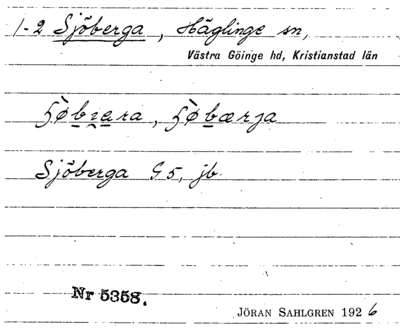 1-2 Sjöberga, Häglinge sn,
Västra Göinge hd, Kristianstad län
Sjöberga G5, jb
Nr 5358.
JÖRAN SAHLGREN 1926